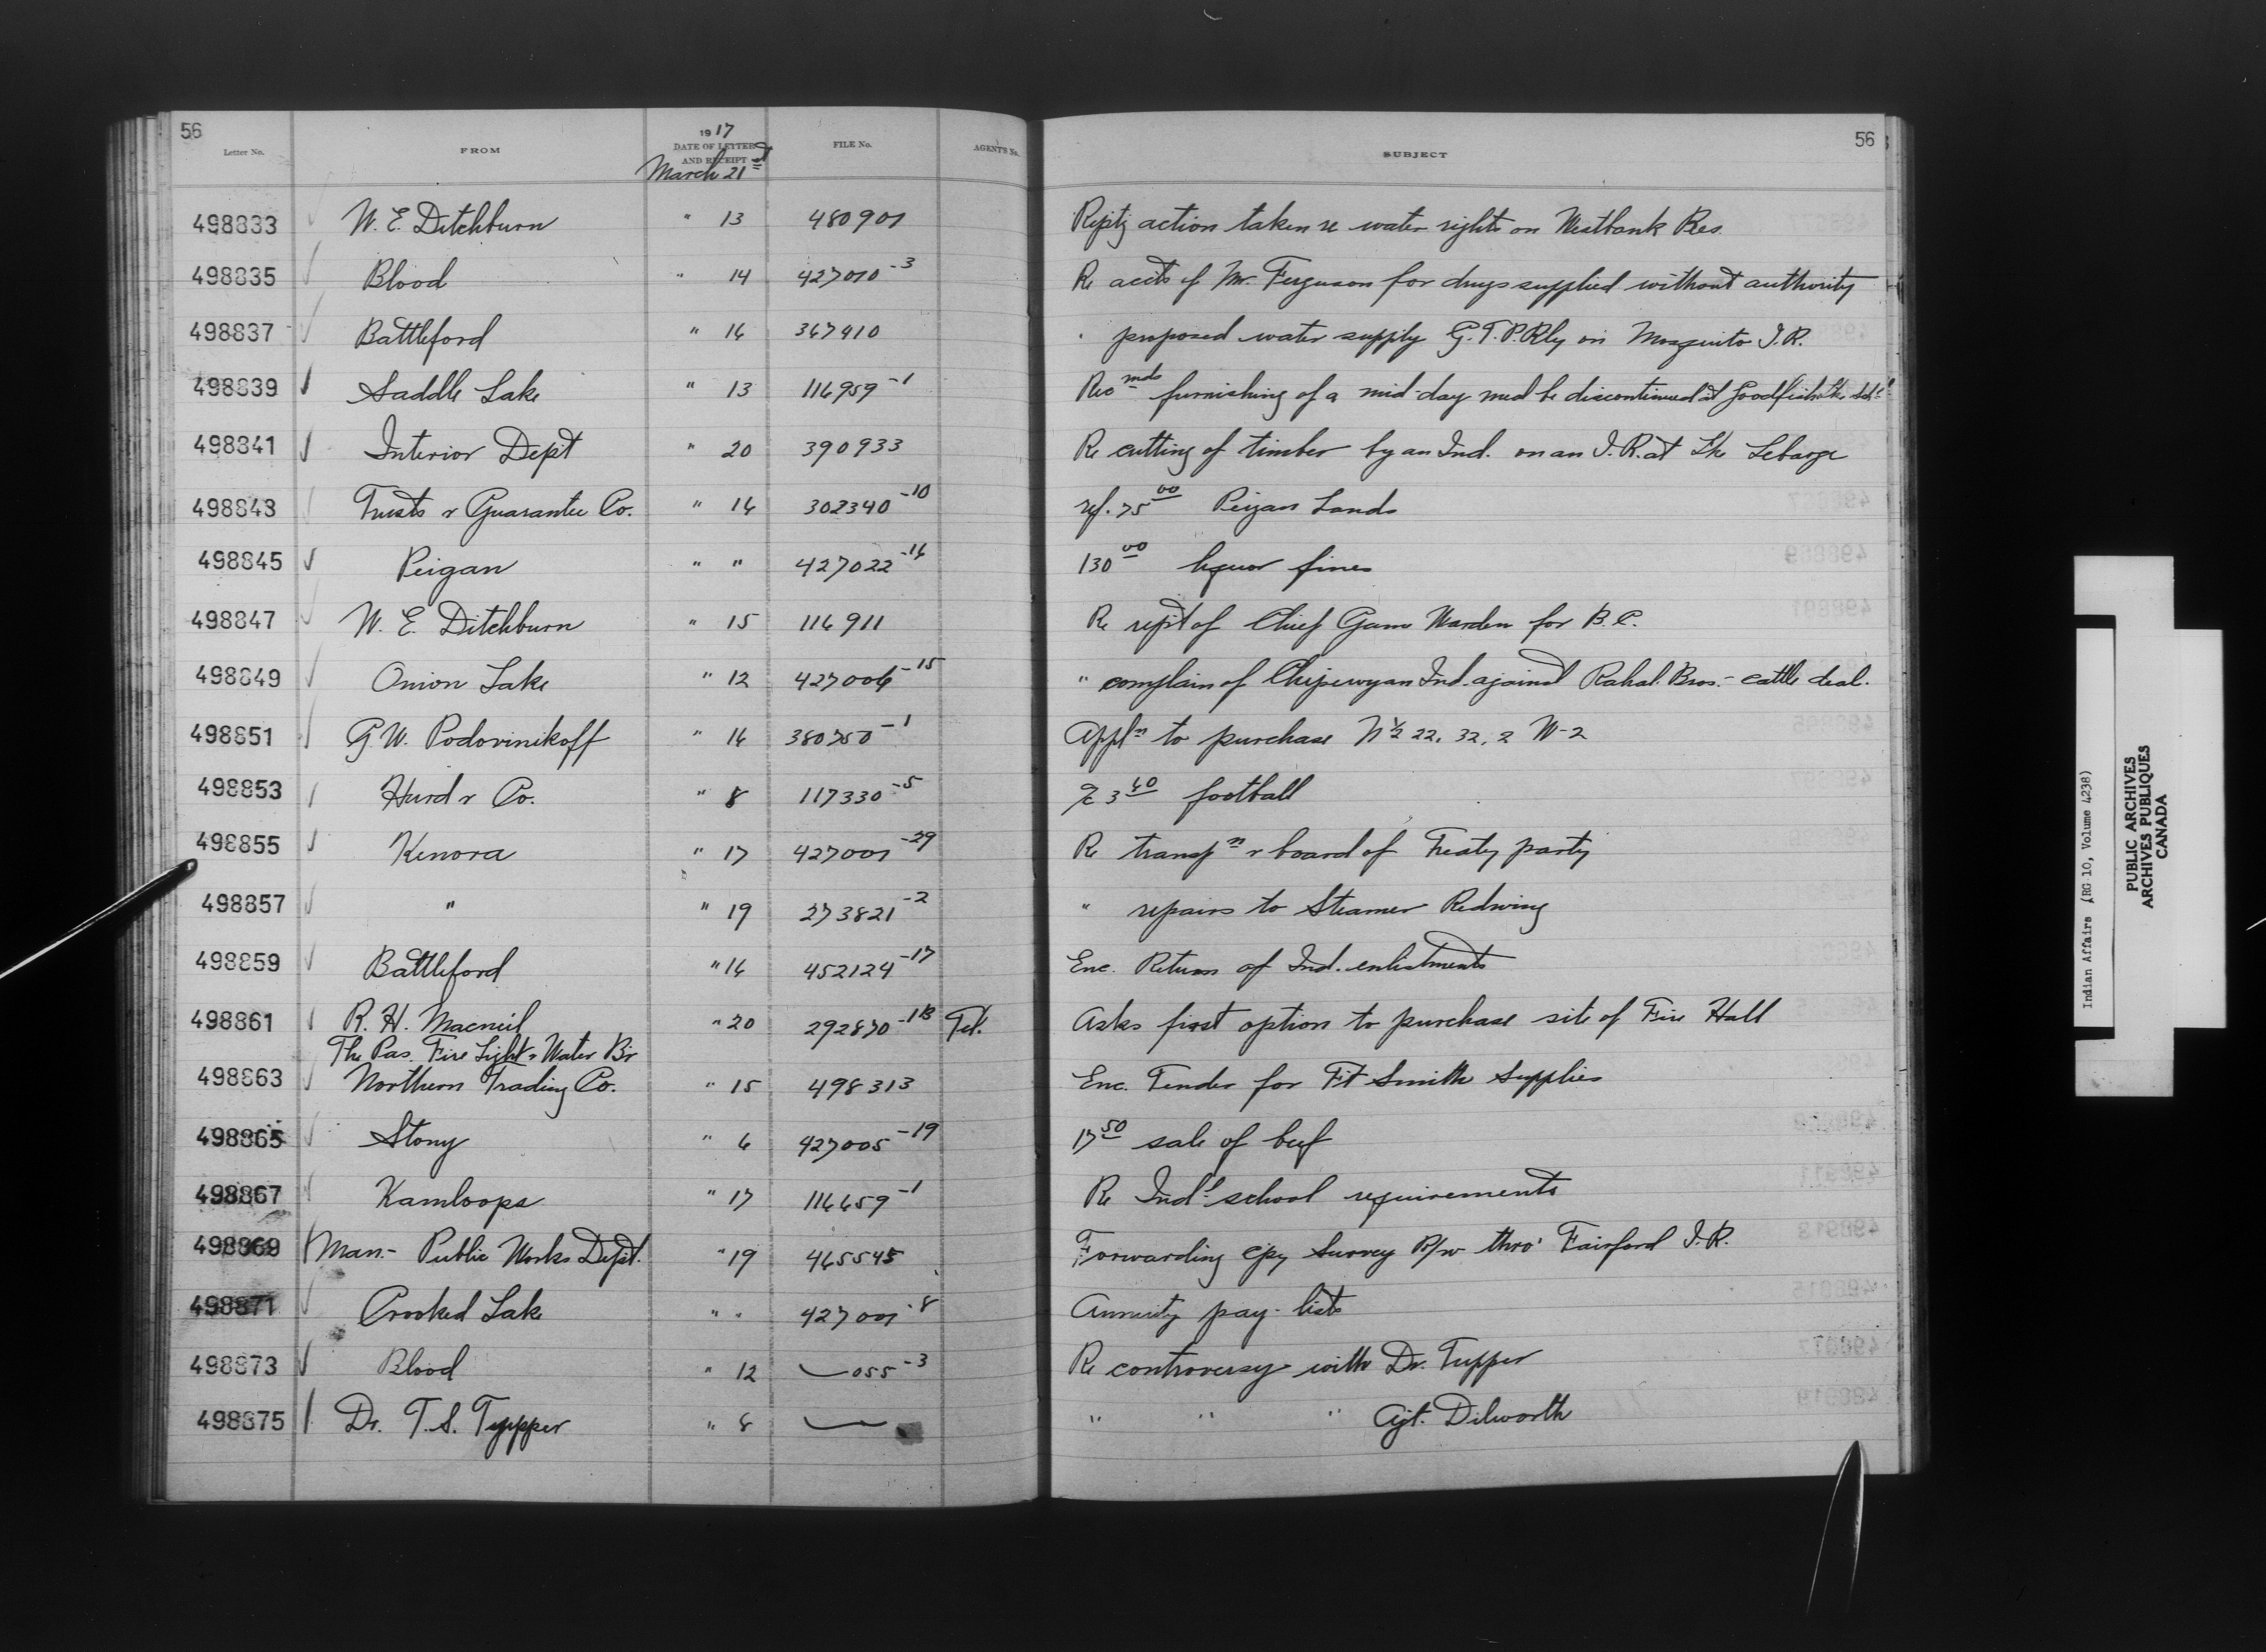 56
Letter No. FROM 1917 DATE OF LETTER AND RECEIPT FILE No. AGENT'S No. SUBJECT 56
March 21st
498833 W. E. Ditchburn " 13 480901 Reptg action taken re water rights on Westbank Res
498835 Blood " 14 427010-3 Re accts of Mr. Ferguson for drugs supplied without authority
498837 Battleford " 16 367410 " proposed water supply G.T.P.Rly on Mosquito I.R.
498839 Saddle Lake " 13 116959-1 Recmds furnishing of a mid-day meal be discontinued at Goodfish Lke Schl
498841 Interior Dept " 20 390933 Re cutting of timber by an Ind. on an I.R. at Lke Lebarge
498843 Trusts & Guarantee Co. " 16 302340-10 ref. 75 00 Peigan Lands
498845 Peigan " " 427022-16 130 00 liquor fines
498847 W. E. Ditchburn " 15 116911 Re rept of Chief Game Warden for B.C.
498849 Onion Lake " 12 427006-15 " complain of Chipewyan Ind. against Rahal Bros. - cattle deal.
498851 G. W. Podovinikoff " 16 380750-1 Appln to purchase N½ 22, 32, 2 W-2
498853 Hurd & Co. " 8 117330-5 3 40 football
498855 Kenora " 17 427001-29 Re transpn & board of Treaty party
498857 " " 19 273821-2 " repairs to Steamer Redwing
498859 Battleford " 16 452124-17 Enc. Return of Ind. enlistments
498861 R. H. Macneil " 20 292870-18 Tel. Asks first option to purchase site of Fire Hall
The Pas Fire Light & Water Br
498863 Northern Trading Co. " 15 498313 Enc. Tender for Ft Smith Supplies
498865 Stony " 6 427005-19 17 50 sale of beef
498867 Kamloops " 17 116659-1 Re Indl school requirements
498869 Man. - Public Works Dept. " 19 465545 Forwarding cpy Survey R/w thro' Fairford I.R.
498871 Crooked Lake " " 427001-8 Annuity pay-lists
498873 Blood " 12 055-3 Re controversy with Dr. Tupper
498875 Dr. T. S. Tupper " 8 " " " Agt. Dilworth
Indian Affairs (RG 10, Volume 4238)
PUBLIC ARCHIVES
ARCHIVES PUBLIQUES
CANADA